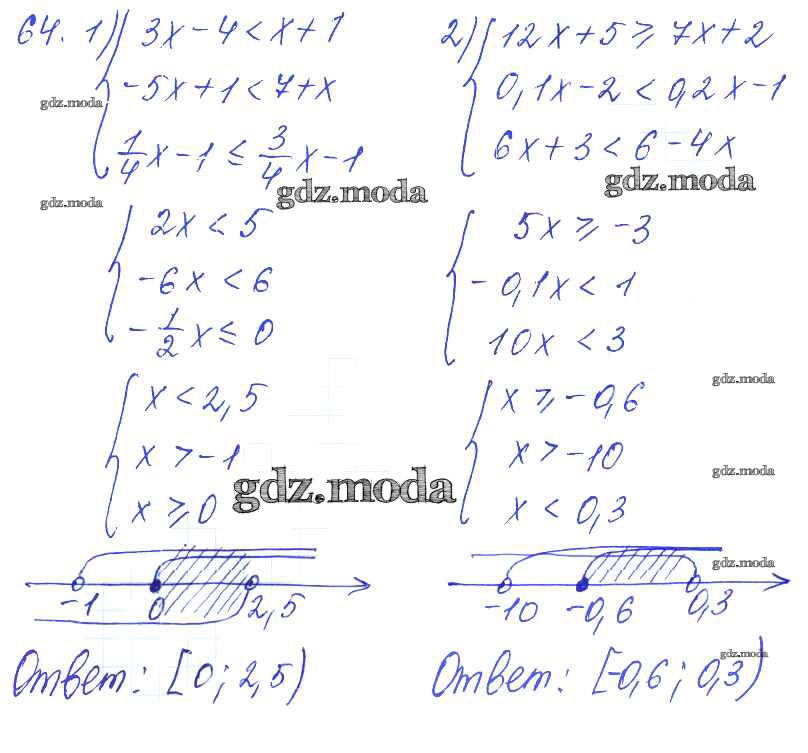 64. 1) { 3x - 4 < x + 1
-5x + 1 < 7 + x
1/4 x - 1 ≤ 3/4 x - 1
{ 2x < 5
-6x < 6
-1/2 x ≤ 0
{ x < 2,5
x > -1
x ≥ 0
-1 0 2,5
Ответ: [0; 2,5)
2) { 12x + 5 ≥ 7x + 2
0,1x - 2 < 0,2x - 1
6x + 3 < 6 - 4x
{ 5x ≥ -3
-0,1x < 1
10x < 3
{ x ≥ -0,6
x > -10
x < 0,3
-10 -0,6 0,3
Ответ: [-0,6; 0,3)
gdz.moda
gdz.moda
gdz.moda
gdz.moda
gdz.moda
gdz.moda
gdz.moda
gdz.moda
gdz.moda